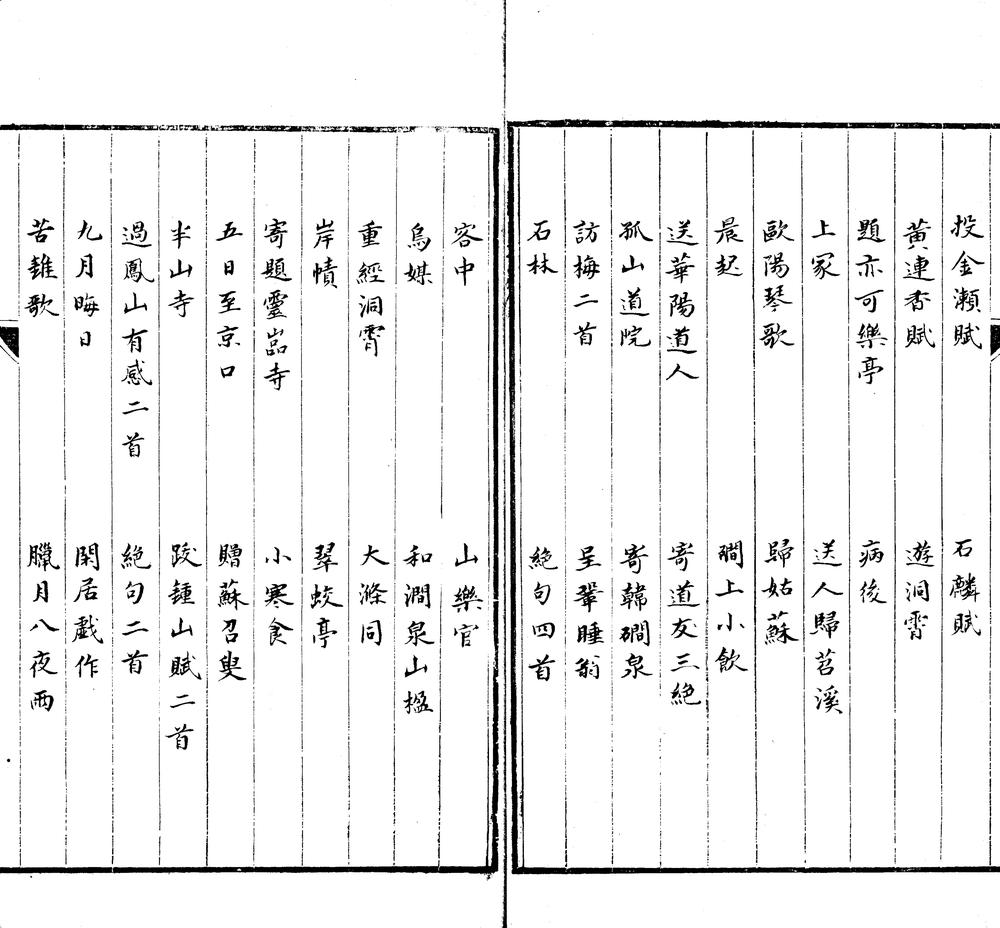 投金瀨賦　石麟賦
黃連香賦　遊洞霄
題亦可樂亭　病後
上冢　送人歸苕溪
歐陽琴歌　歸姑蘇
晨起　磵上小飲
送華陽道人　寄道友三絕
孤山道院　寄韓磵泉
訪梅二首　呈鞏睡翁
石林　絕句四首
容中　山樂官
烏媒　和澗泉山楹
重經洞霄　大滌同
岸幘　翠蛟亭
寄題靈嵓寺　小寒食
五日至京口　贈蘇召叟
半山寺　跋鍾山賦二首
過鳳山有感二首　絕句二首
九月晦日　閑居戲作
苦雖歌　臘月八夜雨